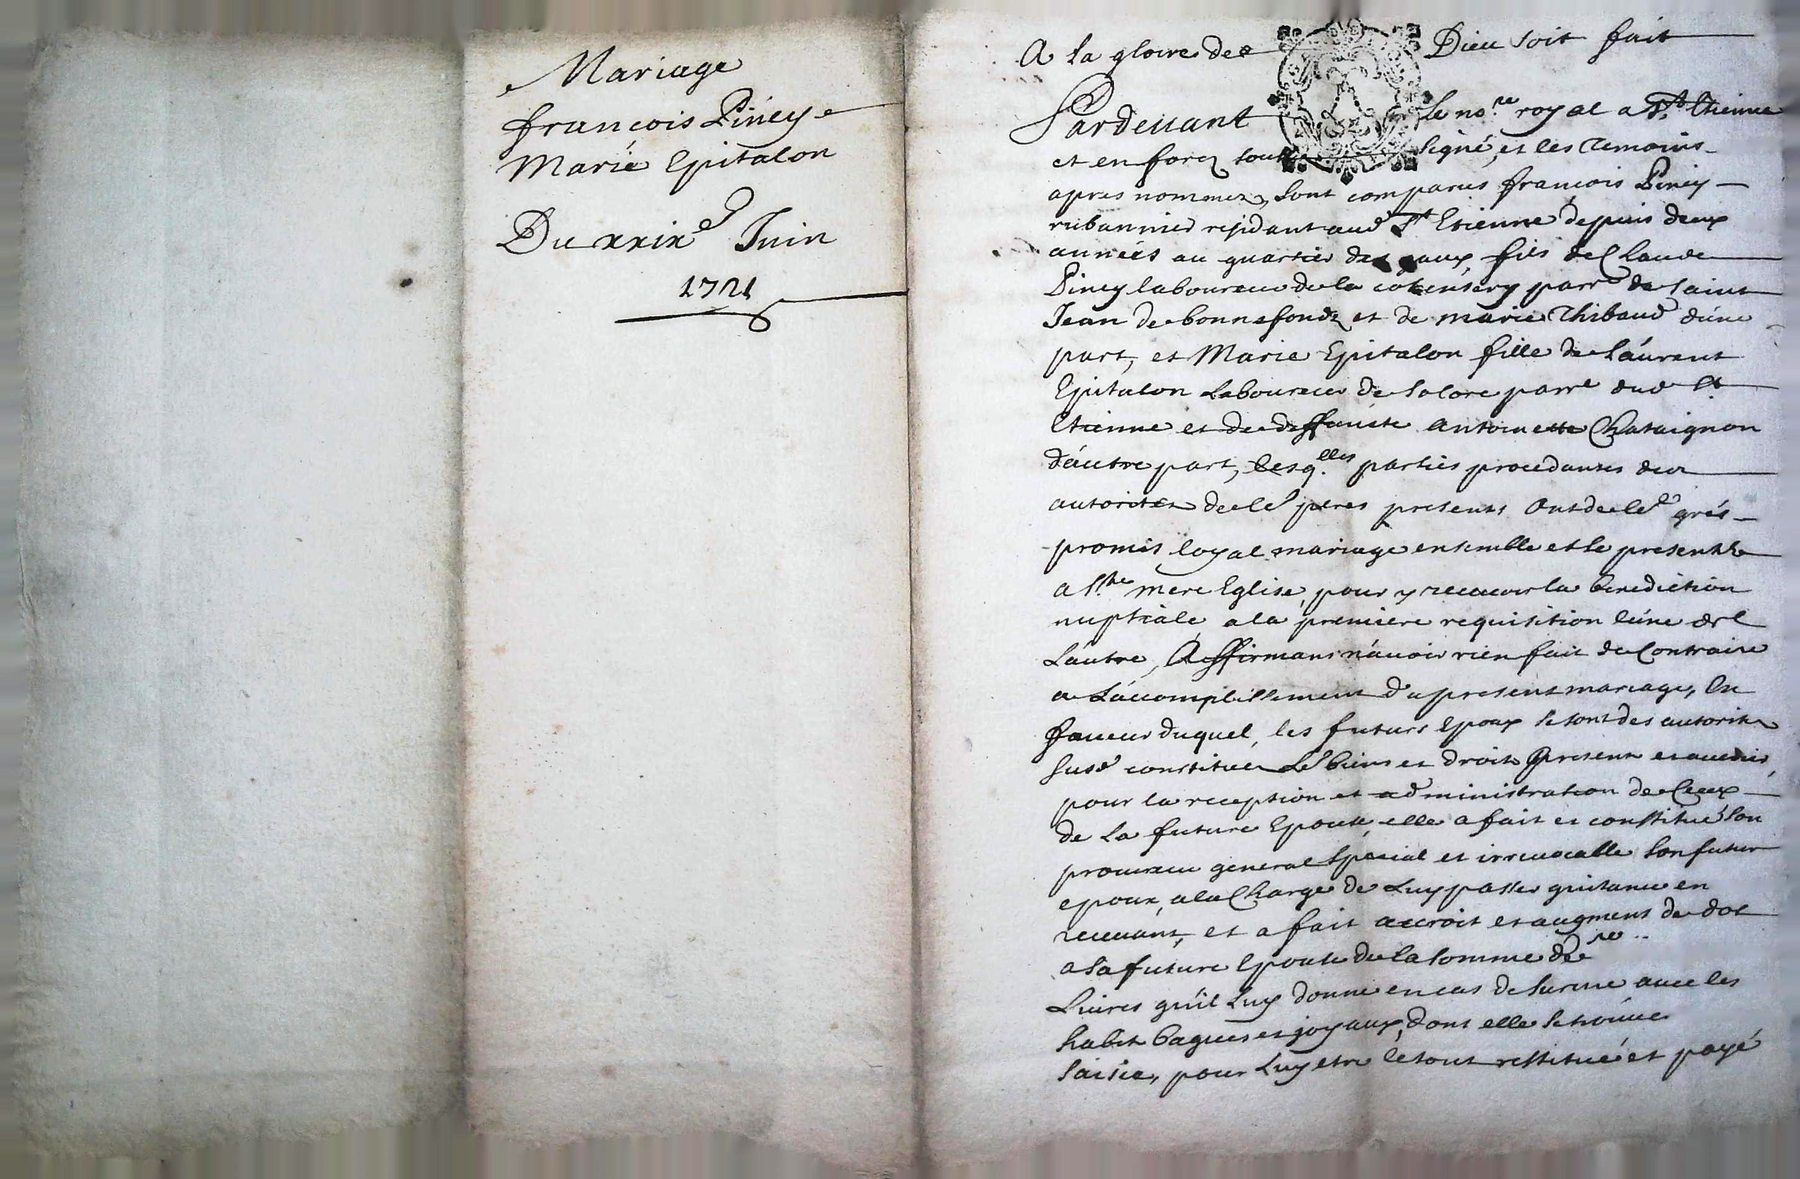 Mariage
françois Piney
Marie Epitalon
Du xxixe Juin
1721
A la gloire de Dieu soit fait
Pardeuant le nore. royal a St. Etienne
et en forez soubsigné, et les temoins
apres nommez, sont comparus françois Piney
rubannier residant aud St Etienne depuis deux
années au quartier des gaux, fils de Claude
Piney laboureur de la parre de saint
Jean de bonnefondz et de marie Thibaud d'úne
part, et Marie Epitalon fille de Láurent
Epitalon Laboureur de Solore parre dud St
Etienne et de deffuncte Antoinette Chataignon
dáutre part, lesq.lles parties procedantes des
autoritez de lrs peres presents ont de lr grés
promis loyal mariage ensemble et se presenter
a Ste mere Eglise, pour y receuoir la benediction
nuptiale a la premiere requisition lúne de
Láutre, Affirmans náuoir rien fait de Contraire
a Láccomplissement du present mariage, En
faueur duquel, les futurs Epoux se sont des autoritez
susd constitué Lrs biens et droits presents et auenir,
pour la reception et administration de Ceux
de La future Epouse, elle a fait et constitué son
procureur general special et irreuocable son futur
epoux, a la Charge de Luy passer quitance en
receuant, et a fait accroit et augment de dot
a sa future Epouse de la somme de
Liures qúil Luy donne en cas de suruie auec les
habits bagues et joyaux, dont elle se trouue
saisie, pour Luy etre le tout restitué et payé